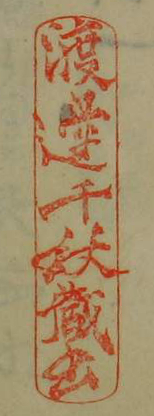 渡邊千秋藏書